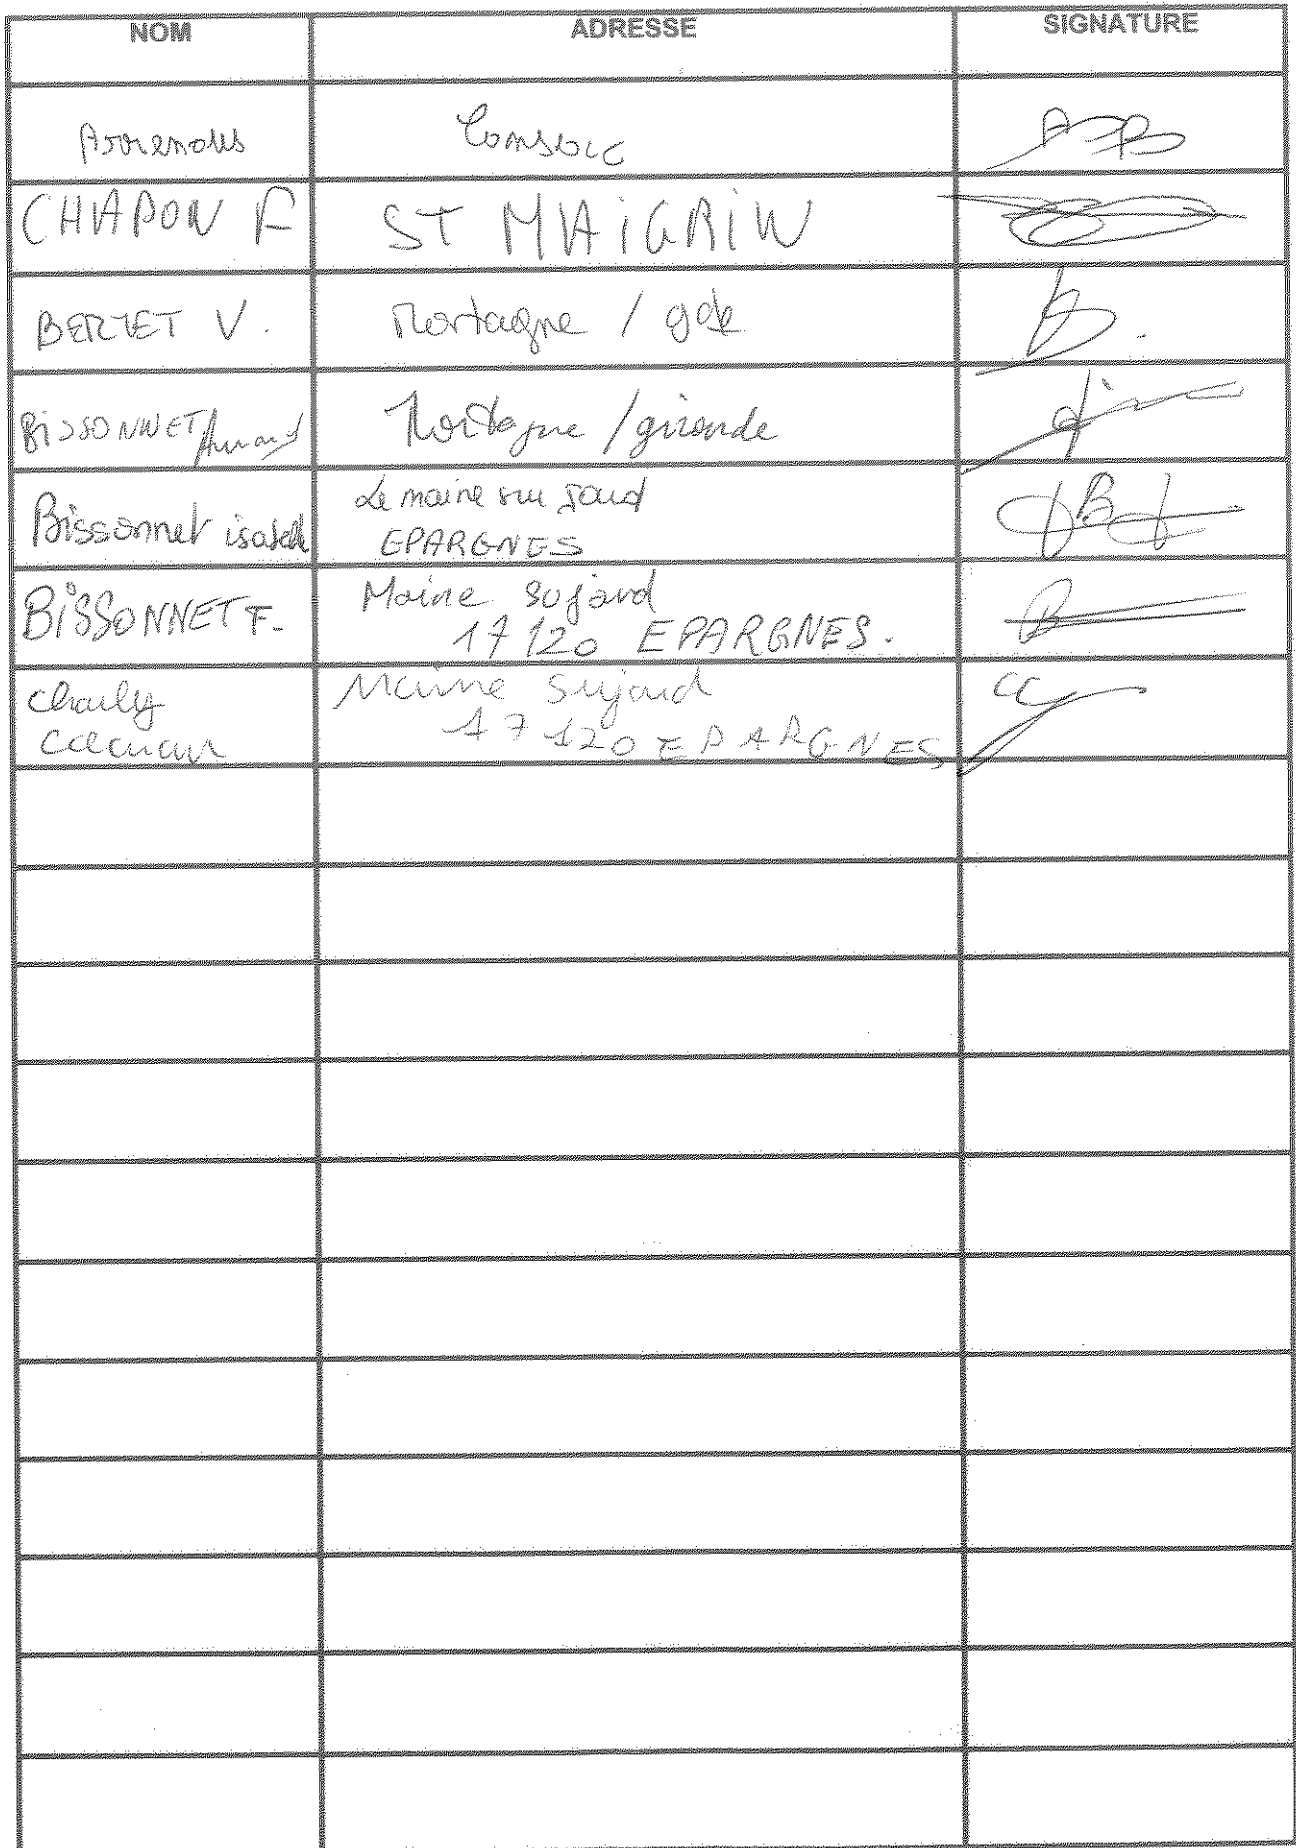 NOM ADRESSE SIGNATURE
CHAPON F ST MAIGRIN
BERTET V. Mortagne / gde
BISSONNET Mortagne / gironde
Bissonnet isabelle Le maine su jaud
EPARGNES
BISSONNET F. Maine Sujaud
17120 EPARGNES.
Charly Maine Sujaud
17120 EPARGNES